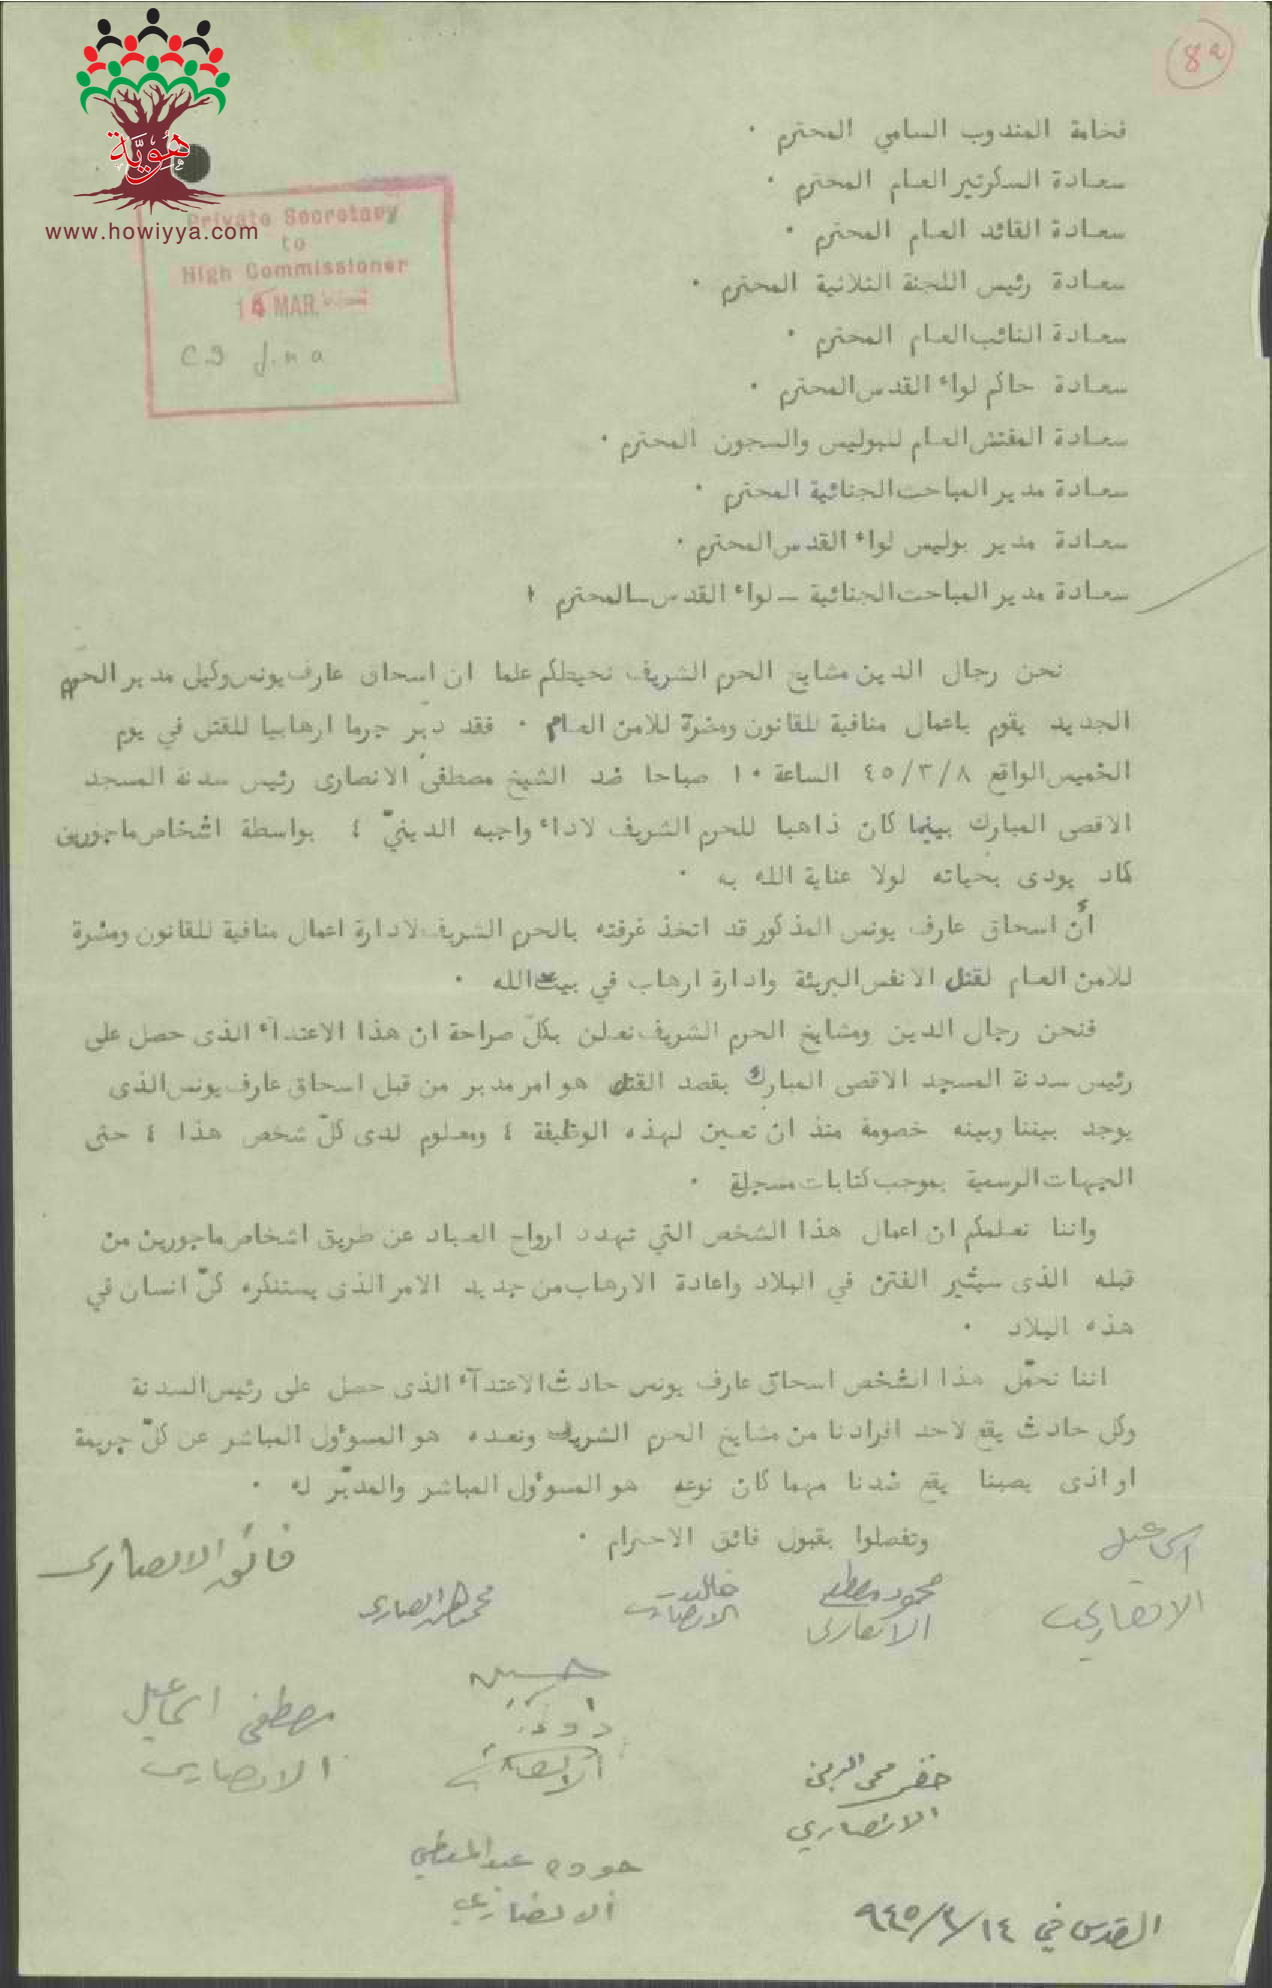 8a
هُوِيَّة
www.howiyya.com
Private Secretary
to
High Commissioner
MAR.
فخامة المندوب السامي المحترم ٠
سعادة السكرتير العام المحترم ٠
سعادة القائد العام المحترم ٠
سعادة رئيس اللجنة الثلاثية المحترم ٠
سعادة النائب العام المحترم ٠
سعادة حاكم لواء القدس المحترم ٠
سعادة المفتش العام للبوليس والسجون المحترم ٠
سعادة مدير المباحث الجنائية المحترم ٠
سعادة مدير بوليس لواء القدس المحترم ٠
سعادة مدير المباحث الجنائية ــ لواء القدس ــ المحترم !
نحن رجال الدين مشايخ الحرم الشريف نحيطكم علما ان اسحاق عارف يونس وكيل مدير الحرم
الجديد يقوم باعمال منافية للقانون ومضرة للامن العام ٠ فقد دبّر جرما ارهابيا للقتل في يوم
الخميس الواقع ٤٥/٣/٨ الساعة ١٠ صباحا ضد الشيخ مصطفى الانصارى رئيس سدنة المسجد
الاقصى المبارك بينما كان ذاهبا للحرم الشريف لاداء واجبه الدينيّ ٤ بواسطة اشخاص ماجورين
كاد يودى بحياته لولا عناية الله به ٠
أنّ اسحاق عارف يونس المذكور قد اتخذ غرفته بالحرم الشريف لادارة اعمال منافية للقانون ومضرة
للامن العام لقتل الانفس البريئة وادارة ارهاب في بيت الله ٠
فنحن رجال الدين ومشايخ الحرم الشريف نعلن بكلّ صراحة ان هذا الاعتدآء الذى حصل على
رئيس سدنة المسجد الاقصى المبارك بقصد القتل هو امر مدبر من قبل اسحاق عارف يونس الذى
يوجد بيننا وبينه خصومة منذ ان تعين لهذه الوظيفة ٤ ومعلوم لدى كلّ شخص هذا ٤ حتى
الجهات الرسمية بموجب كتابات مسجلة ٠
واننا نعلمكم ان اعمال هذا الشخص التي تهدد ارواح العباد عن طريق اشخاص ماجورين من
قبله الذى سيثير الفتن في البلاد واعادة الارهاب من جديد الامر الذى يستنكره كلّ انسان في
هذه البلاد ٠
اننا نحمّل هذا الشخص اسحاق عارف يونس حادث الاعتدآء الذى حصل على رئيس السدنة
وكل حادث يقع لاحد افرادنا من مشايخ الحرم الشريف ونعده هو المسوؤل المباشر عن كلّ جريمة
او اذى يصبنا يقع ضدنا مهما كان نوعه هو المسوؤل المباشر والمدبّر له ٠
وتفضلوا بقبول فائق الاحترام ٠
اسماعيل
الانصاري
محمود مصطفى
الانصاري
خالد
الانصاري
الانصاري
فائق الانصاري
حسين
داود
الانصاري
مصطفى اسماعيل
الانصاري
خضر محي الدين
الانصاري
حموده عبد المعطي
الانصاري
القدس في ٩٤٥/٣/١٤